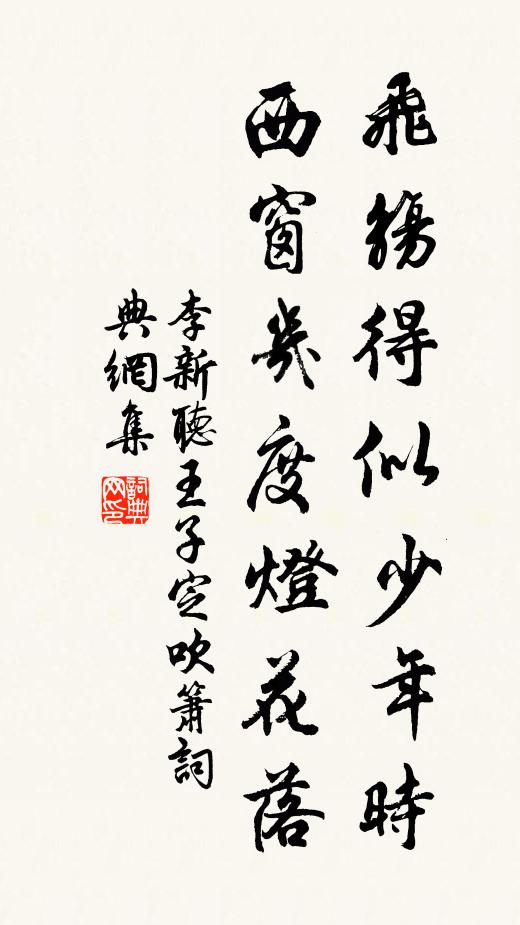 飛觴得似少年時
西窗幾度燈花落
李新聽王子定吹簫詞
典網集
詞典网印